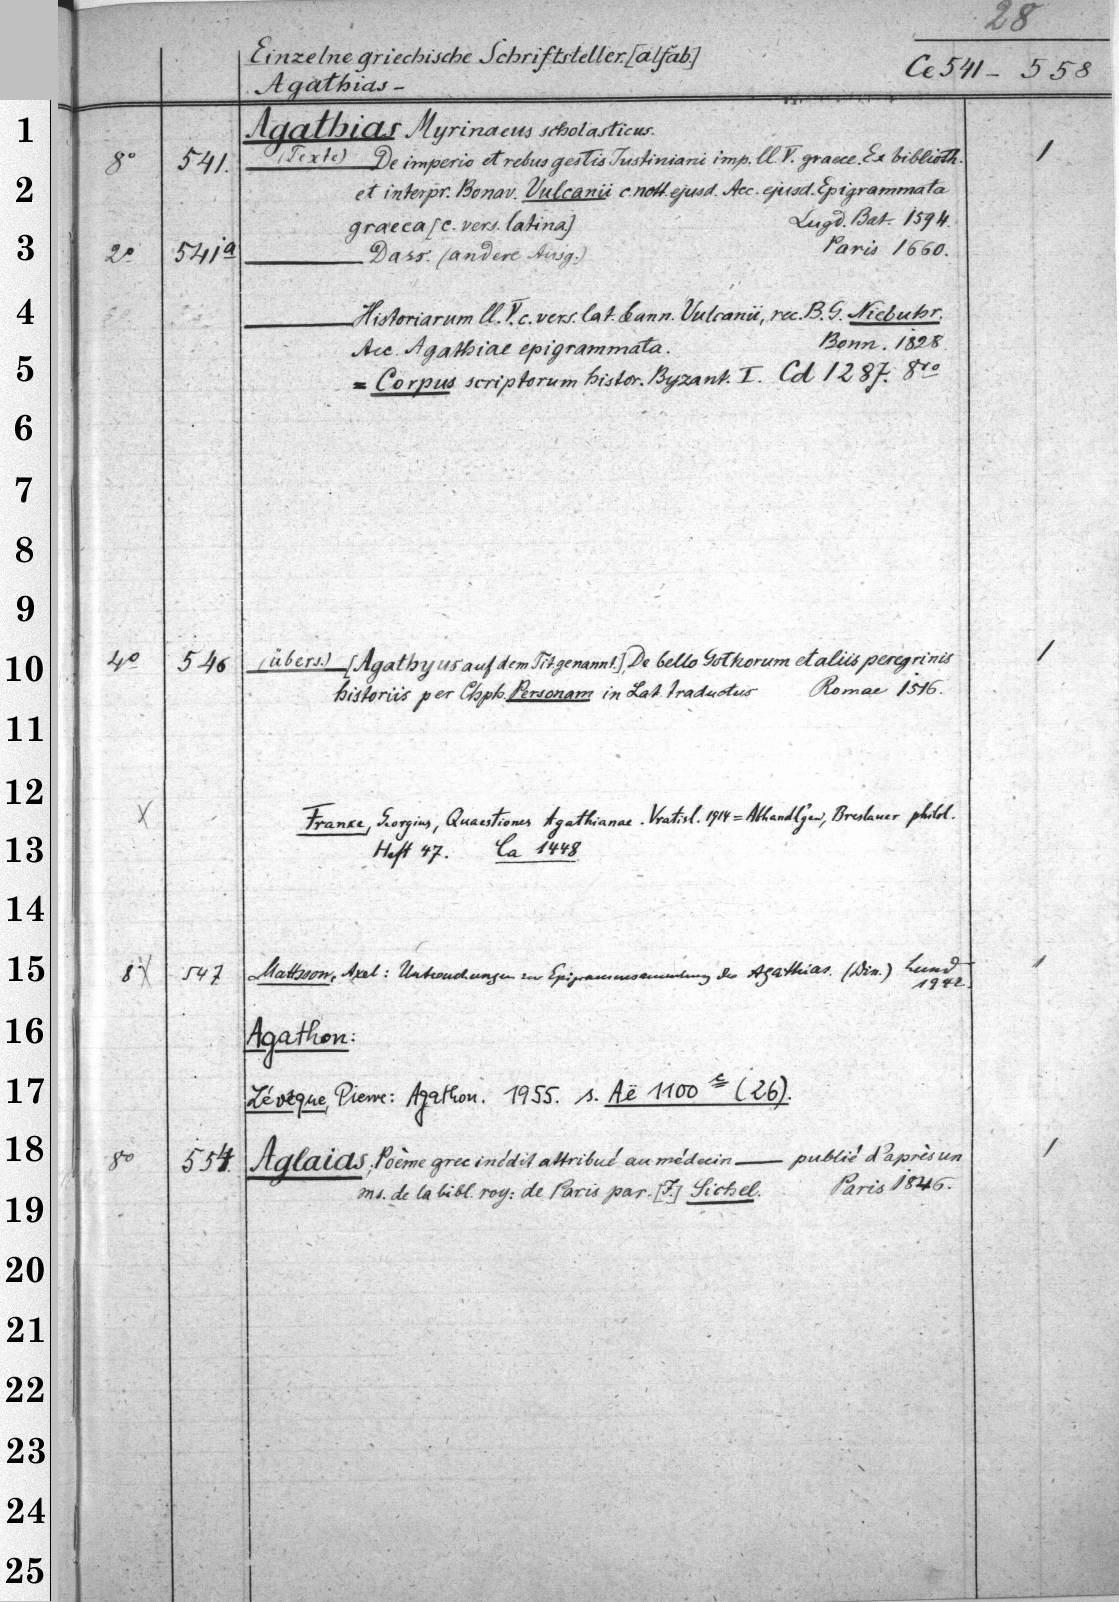 28
Einzelne griechische Schriftsteller. [alfab.]
Ce 541 - 558
Agathias -
1
Agathias Myrinaeus scholasticus.
8° 541. (Texte) De imperio et rebus gestis Justiniani imp. ll. V. graece. Ex biblioth. 1
2
et interpr. Bonav. Vulcanii c. nott. ejusd. Acc. ejusd. Epigrammata
graeca [c. vers. latina] Lugd. Bat. 1594.
3
2° 541a Dass. (andere Ausg.) Paris 1660.
4
Historiarum ll. V. c. vers. lat. & ann. Vulcanii, rec. B. G. Niebuhr.
Acc. Agathiae epigrammata. Bonn. 1828
5
= Corpus scriptorum histor. Byzant. I. Cd 1287. 8vo
6
7
8
9
10
4° 546 (übers.) [Agathyus auf dem Tit. genannt.] De bello Gothorum et aliis peregrinis 1
historiis per Chph. Personam in Lat. traductus Romae 1516.
11
12
X Franke, Georgius, Quaestiones Agathianae. Vratisl. 1914 = Abhandlgen, Breslauer philol.
13
Heft 47. Ca 1448
14
15
8° X 547 Mattsson, Axel: Untersuchungen zur Epigrammsammlung des Agathias. (Diss.) Lund 1
1942.
16
Agathon:
17
Lévêque, Pierre: Agathon. 1955. s. Aë 1100 c (26).
18
8° 554. Aglaias, Poème grec inédit attribué au médecin — publié d'après un 1
ms. de la bibl. roy: de Paris par. [J.] Sichel. Paris 1846.
19
20
21
22
23
24
25